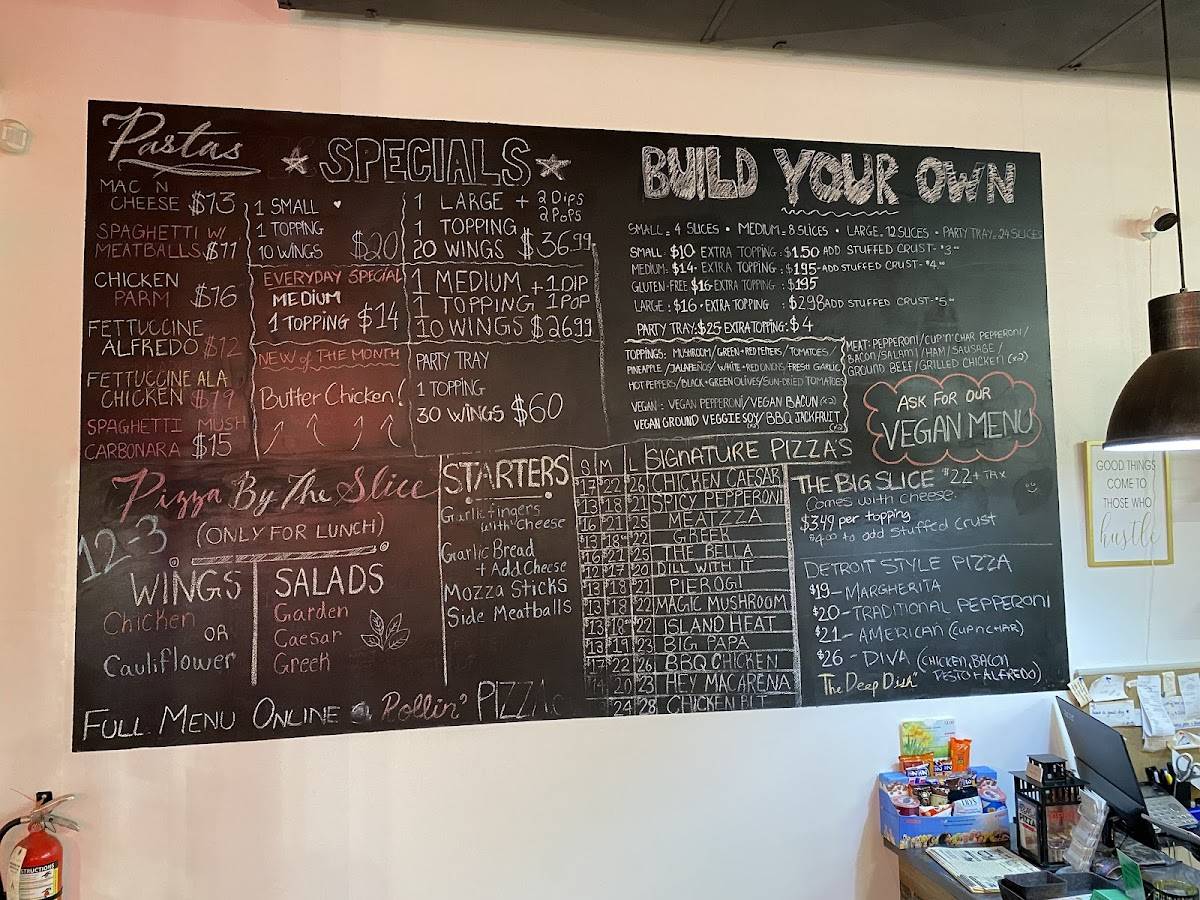 Pastas
MAC N
CHEESE $13
SPAGHETTI W/
MEATBALLS $11
CHICKEN
PARM $16
FETTUCCINE
ALFREDO $12
FETTUCCINE ALA
CHICKEN $19
SPAGHETTI MUSH
CARBONARA $15
SPECIALS
1 SMALL
1 TOPPING
10 WINGS $20
EVERYDAY SPECIAL
MEDIUM
1 TOPPING $14
NEW of THE MONTH
Butter Chicken!
1 LARGE + 2 Dips
2 Pops
1 TOPPING
20 WINGS $36.99
1 MEDIUM + 1 DIP
1 TOPPING 1 POP
10 WINGS $26.99
PARTY TRAY
1 TOPPING
30 WINGS $60
BUILD YOUR OWN
SMALL = 4 SLICES • MEDIUM = 8 SLICES • LARGE = 12 SLICES • PARTY TRAY = 24 SLICES
SMALL: $10 EXTRA TOPPING: $1.50 ADD STUFFED CRUST-
MEDIUM: $14 • EXTRA TOPPING: $1.95 - ADD STUFFED CRUST-
GLUTEN-FREE $16 - EXTRA TOPPING: $1.95
LARGE: $16 • EXTRA TOPPING: $2.98 ADD STUFFED CRUST-
PARTY TRAY: $25 EXTRA TOPPING: $4
TOPPINGS: MUSHROOM/GREEN+RED PEPPERS/TOMATOES/
PINEAPPLE/JALAPENOS/WHITE+RED ONIONS FRESH GARLIC
HOT PEPPERS/BLACK+GREEN OLIVES/SUN-DRIED TOMATOES
VEGAN: VEGAN PEPPERONI/VEGAN BACON (x2)
VEGAN GROUND VEGGIE SOY/BBQ JACKFRUIT
MEAT: PEPPERONI/CUP'N'CHAR PEPPERONI/
BACON/SALAMI/HAM/SAUSAGE/
GROUND BEEF/GRILLED CHICKEN (x2)
ASK FOR OUR
VEGAN MENU
Pizza By The Slice
(ONLY FOR LUNCH)
12-3
WINGS
Chicken
OR
Cauliflower
SALADS
Garden
Caesar
Greek
STARTERS
Garlic fingers
with Cheese
Garlic Bread
+ Add Cheese
Mozza Sticks
Side Meatballs
S M L SIGNATURE PIZZA'S
22 26 CHICKEN CAESAR
$13 18 21 SPICY PEPPERONI
$16 21 25 MEATZZA
$13 18 22 GREEK
$16 21 25 THE BELLA
$12 17 20 DILL WITH IT
$13 18 21 PIEROGI
$13 18 22 MAGIC MUSHROOM
$13 18 22 ISLAND HEAT
$13 19 23 BIG PAPA
$17 22 26 BBQ CHICKEN
20 23 HEY MACARENA
24 28 CHICKEN
THE BIG SLICE $22 + TAX
Comes with cheese.
$3.49 per topping
to add stuffed crust
DETROIT STYLE PIZZA
$19 - MARGHERITA
$20 - TRADITIONAL PEPPERONI
$21 - AMERICAN (CUP N CHAR)
$26 - DIVA (CHICKEN, BACON
PESTO + ALFREDO)
"The Deep Dish"
FULL MENU ONLINE @ Rollin' PIZZA
GOOD THINGS
COME TO
THOSE WHO
hustle